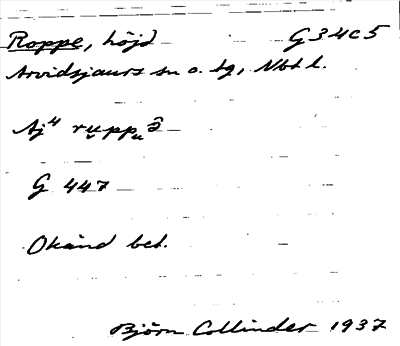 Roppe, höjd G34C5
Arvidsjaurs sn o. tg, Nbd l.
Aj⁴ ru̯ppu̯ə̂
G 447
Okänd bet.
Björn Collinder 1937